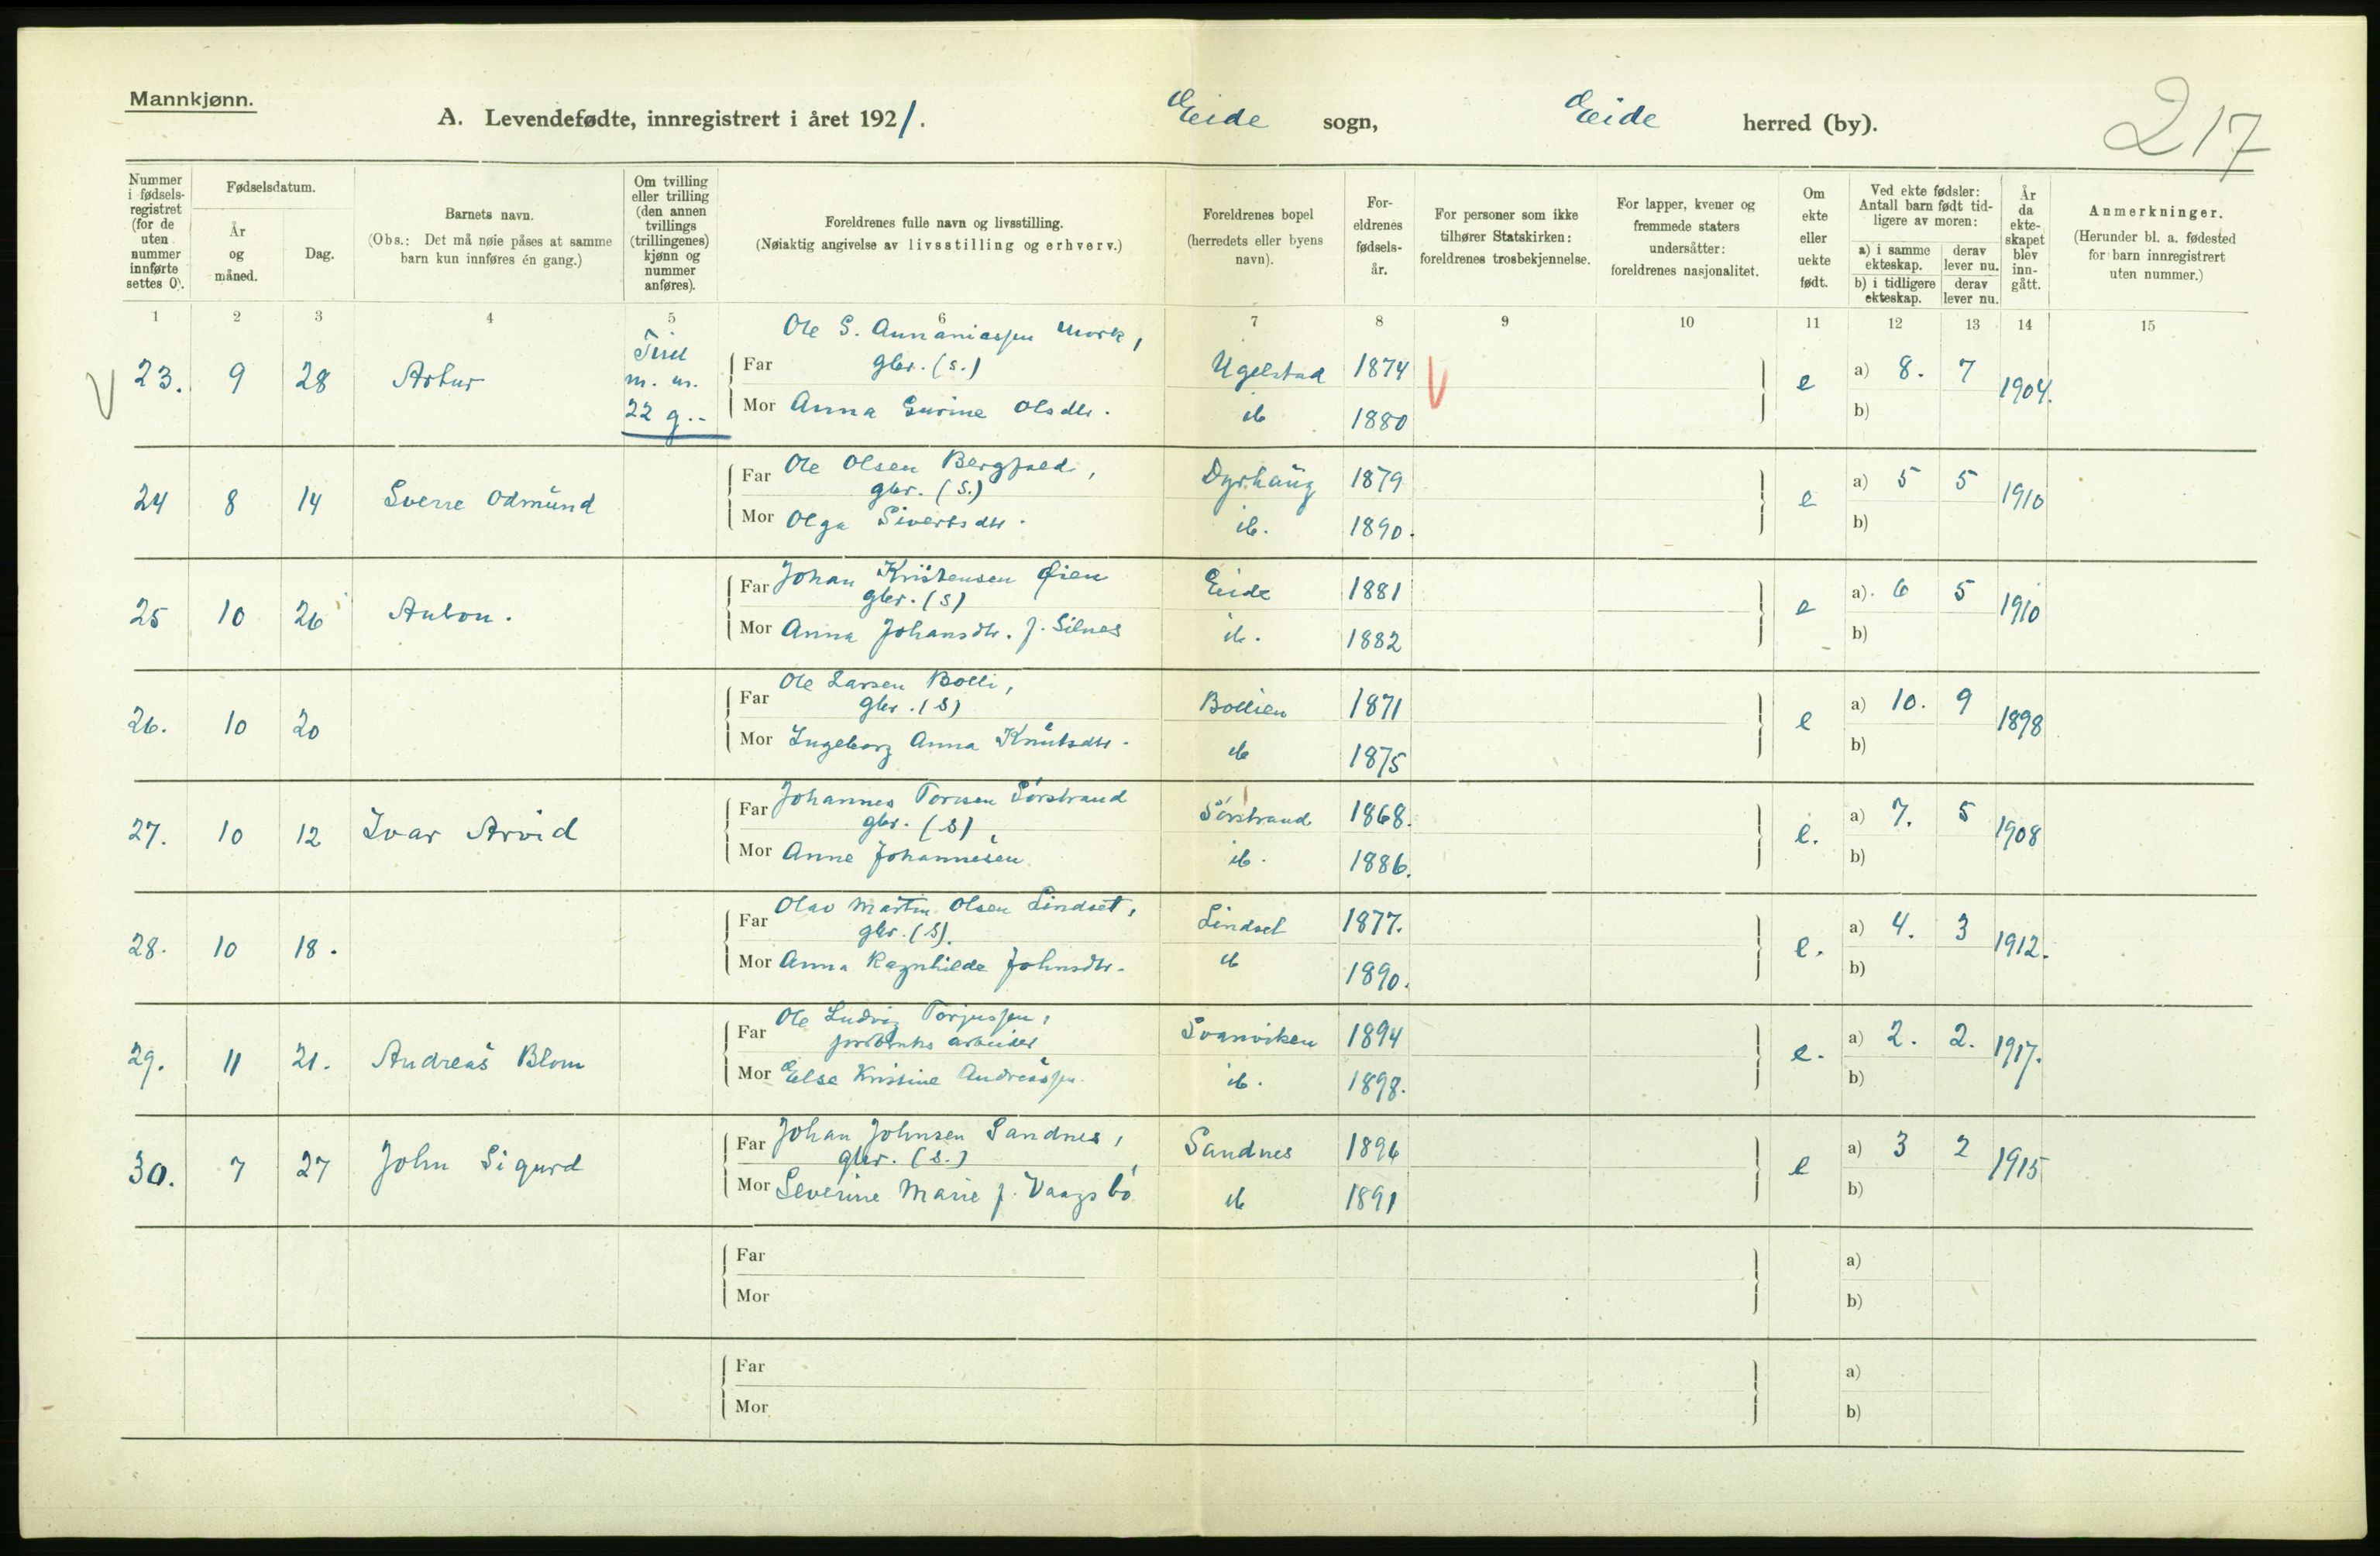 Mannkjønn.
A. Levendefødte, innregistrert i året 1921. Eide sogn, Eide herred (by).
217
Nummer i fødselsregistret (for de uten nummer innførte settes 0).
Fødselsdatum.
År og måned.
Dag.
Barnets navn.
(Obs.: Det må nøie påses at samme barn kun innføres én gang.)
Om tvilling eller trilling (den annen tvillings (trillingenes) kjønn og nummer anføres).
Foreldrenes fulle navn og livsstilling.
(Nøiaktig angivelse av livsstilling og erhverv.)
Foreldrenes bopel (herredets eller byens navn).
Foreldrenes fødselsår.
For personer som ikke tilhører Statskirken: foreldrenes trosbekjennelse.
For lapper, kvener og fremmede staters undersåtter: foreldrenes nasjonalitet.
Om ekte eller uekte født.
Ved ekte fødsler: Antall barn født tidligere av moren:
a) i samme ekteskap. derav lever nu.
b) i tidligere ekteskap. derav lever nu.
År da ekteskapet blev inngått.
Anmerkninger.
(Herunder bl. a. fødested for barn innregistrert uten nummer.)
1 2 3 4 5 6 7 8 9 10 11 12 13 14 15
V 23. 9 28 Artur m. m. 22 g.
Far Ole S. Annaniassen Mork, gbr. (s.) Ugelstad 1874 V e a) 8. 7 1904.
Mor Anna Gurine Olsdtr. ib 1880 b)
24 8 14 Sverre Odmund
Far Ole Olsen Bergfald, gbr. (S.) Dyrhaug 1879 e a) 5 5 1910
Mor Olga Sivertsdtr. ib. 1890. b)
25 10 26 Anton.
Far Johan Kristensen Øien gbr. (S) Eide 1881 e a) 6 5 1910
Mor Anna Johansdtr. f. Silnes ib. 1882 b)
26. 10 20
Far Ole Larsen Bolli, gbr. (S) Bollien 1871 e a) 10. 9 1898
Mor Ingeborg Anna Knutsdtr. ib 1875 b)
27. 10 12 Ivar Arvid
Far Johannes Toresen Sørstrand gbr. (S) Sørstrand 1868. e. a) 7. 5 1908
Mor Anne Johannesen ib. 1886. b)
28. 10 18.
Far Olav Martin Olsen Lindset, gbr. (S). Lindset 1877. e. a) 4. 3 1912.
Mor Anna Ragnhilde Johnsdtr. ib 1890. b)
29. 11 21. Andreas Blom
Far Ole Ludvig Torjussen, jordbruks arbeider Svanviken 1894 e. a) 2. 2. 1917.
Mor Else Kristine Andreassen ib. 1898. b)
30. 7 27 John Sigurd
Far Johan Johnsen Sandnes, gbr. (S.) Sandnes 1894 e a) 3 2 1915
Mor Severine Marie f. Vaagsbø ib 1891 b)
Far a)
Mor b)
Far a)
Mor b)